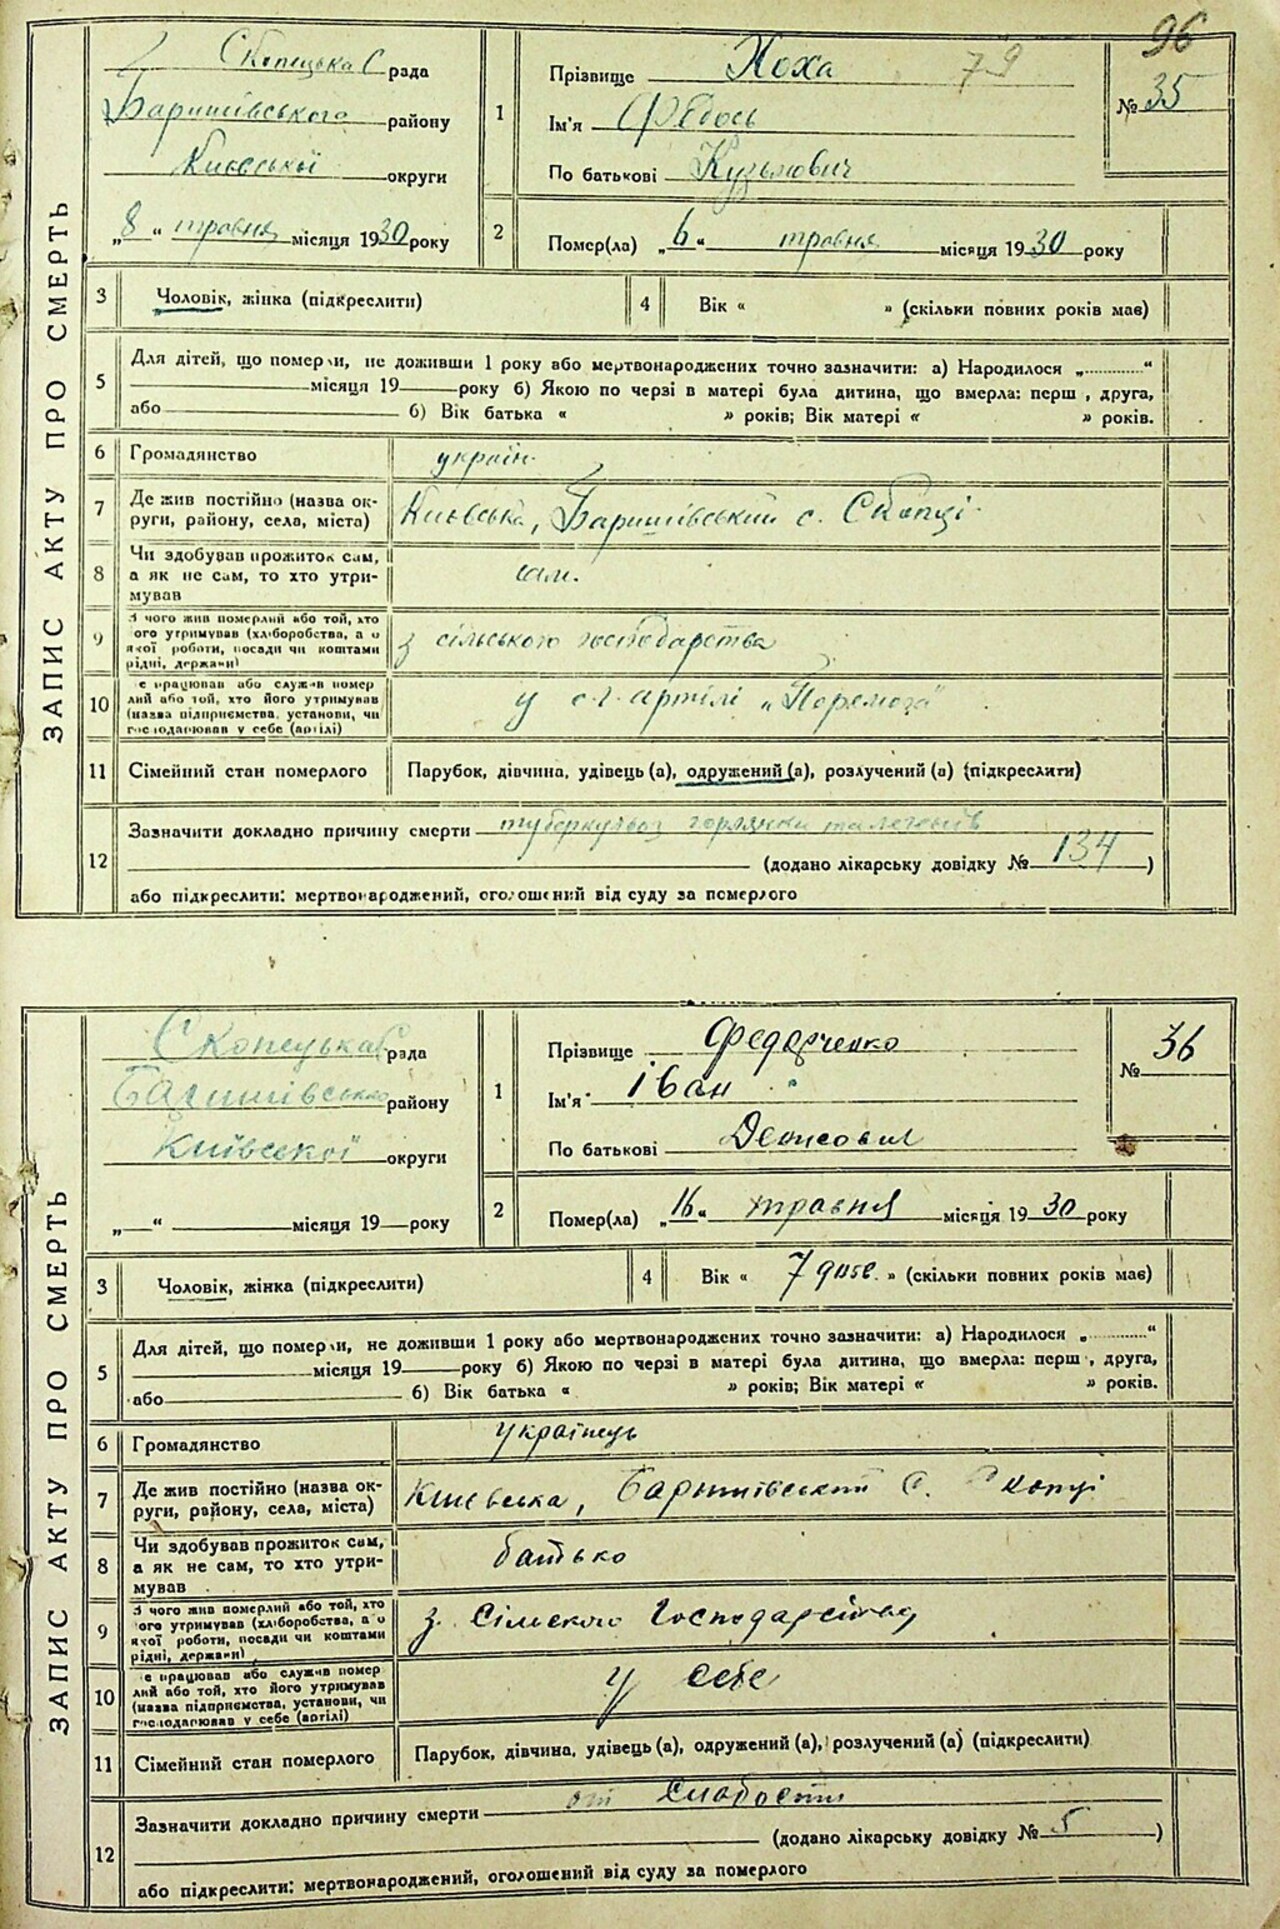 96
ЗАПИС АКТУ ПРО СМЕРТЬ
Скопецька С рада
Баришівського району
Києвської округи
„8“ травня місяця 1930 року
1
Прізвище Коха 79
Ім'я Федось
По батькові Кузьмович
№ 35
2
Помер(ла) „6“ травня місяця 1930 року
3 Чоловік, жінка (підкреслити)
4 Вік « » (скільки повних років має)
5
Для дітей, що померли, не доживши 1 року або мертвонароджених точно зазначити: а) Народилося „............“
місяця 19 року б) Якою по черзі в матері була дитина, що вмерла: перш , друга,
або б) Вік батька « » років; Вік матері « » років.
6 Громадянство україн.
7
Де жив постійно (назва ок-
руги, району, села, міста)
Київська, Баришівський с. Скопці
8
Чи здобував прожиток сам,
а як не сам, то хто утри-
мував
сам.
9
З чого жив померлий або той, хто
ого утримував (хліборобства, а о
якої роботи, посади чи коштами
рідні, держави)
з сільського господарства
10
е працював або служив помер
лий або той, хто його утримував
(назва підприємства, установи, чи
господарював у себе (артілі)
у с.г. артілі „Перемога“
11 Сімейний стан померлого
Парубок, дівчина, удівець (а), одружений (а), розлучений (а) (підкреслити)
12
Зазначити докладно причину смерти туберкульоз горлянки та легенів
(додано лікарську довідку № 134 )
або підкреслити: мертвонароджений, оголошений від суду за померлого
ЗАПИС АКТУ ПРО СМЕРТЬ
Скопецька С рада
Баришівського району
Київської округи
„ “ місяця 19 року
1
Прізвище Федорченко
Ім'я Іван
По батькові Денисович
№ 36
2
Помер(ла) „16“ травня місяця 1930 року
3 Чоловік, жінка (підкреслити)
4 Вік « 7 днів. » (скільки повних років має)
5
Для дітей, що померли, не доживши 1 року або мертвонароджених точно зазначити: а) Народилося „............“
місяця 19 року б) Якою по черзі в матері була дитина, що вмерла: перш , друга,
або б) Вік батька « » років; Вік матері « » років.
6 Громадянство українець
7
Де жив постійно (назва ок-
руги, району, села, міста)
Киевська, Баришівський С. Скопці
8
Чи здобував прожиток сам,
а як не сам, то хто утри-
мував
батько
9
З чого жив померлий або той, хто
ого утримував (хліборобства, а о
якої роботи, посади чи коштами
рідні, держави)
з Сільского Господарства
10
е працював або служив помер
лий або той, хто його утримував
(назва підприємства, установи, чи
господарював у себе (артілі)
у себе
11 Сімейний стан померлого
Парубок, дівчина, удівець (а), одружений (а), розлучений (а) (підкреслити)
12
Зазначити докладно причину смерти от Слабости
(додано лікарську довідку № 5 )
або підкреслити: мертвонароджений, оголошений від суду за померлого